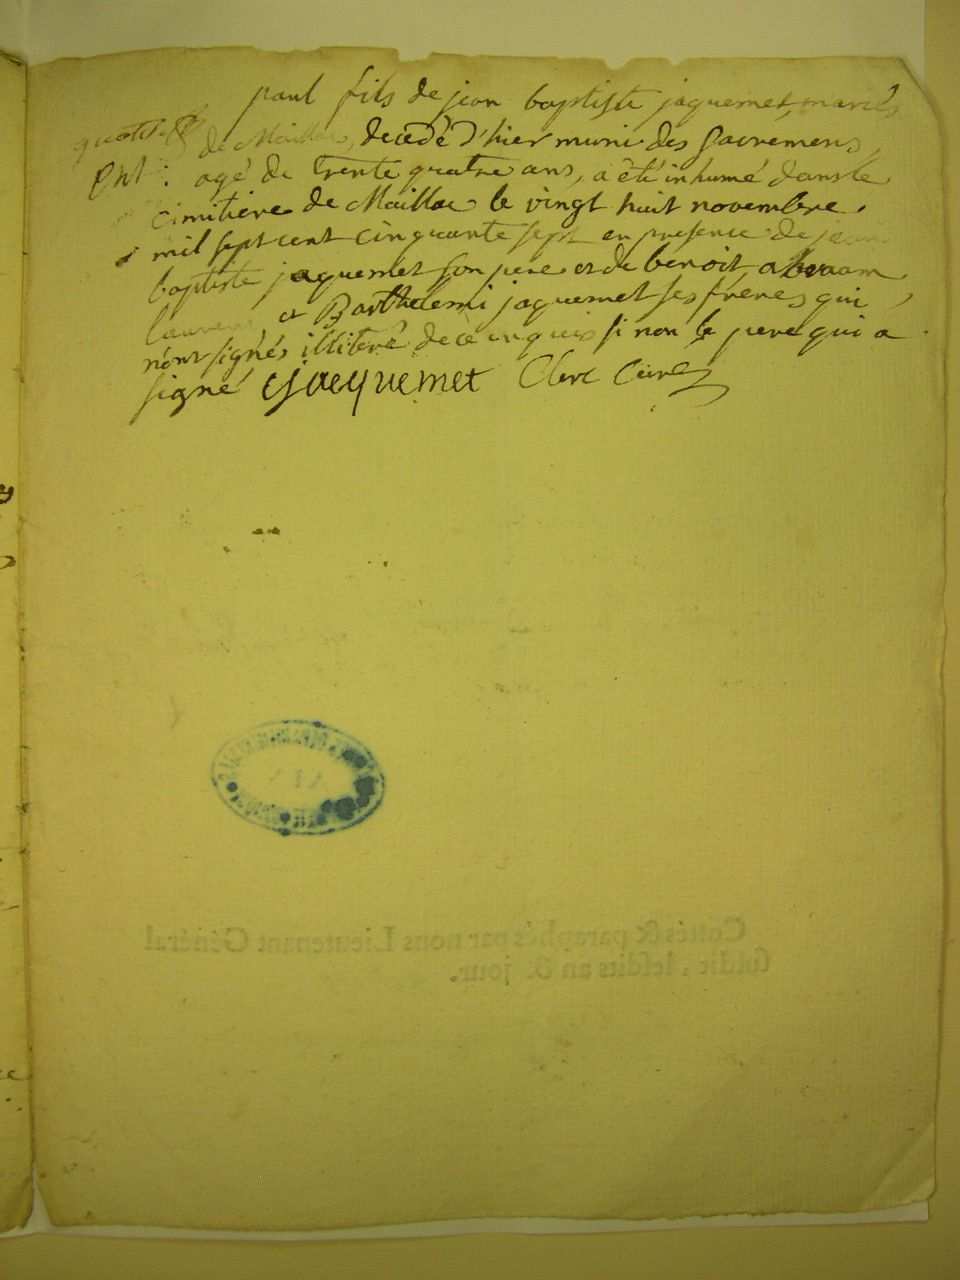 paul fils de jean baptiste jaquemet, marié
de Maillac, decedé d'hier muni des sacremens,
Ent. agé de trente quatre ans, a èté inhumé dans le
cimitiere de Maillac le vingt huit novembre
mil sept cent cinquante sept en presence de jean
baptiste jaquemet son pere et de benoit, abraam,
laurent, et Barthelemi jaquemet ses freres qui
n'ont signés illiteré de ce enquis si non le pere qui a
signé cjacquemet Clerc Curé
Cottés & paraphés par nous Lieutenant Général
susdit, lesdits an & jour.